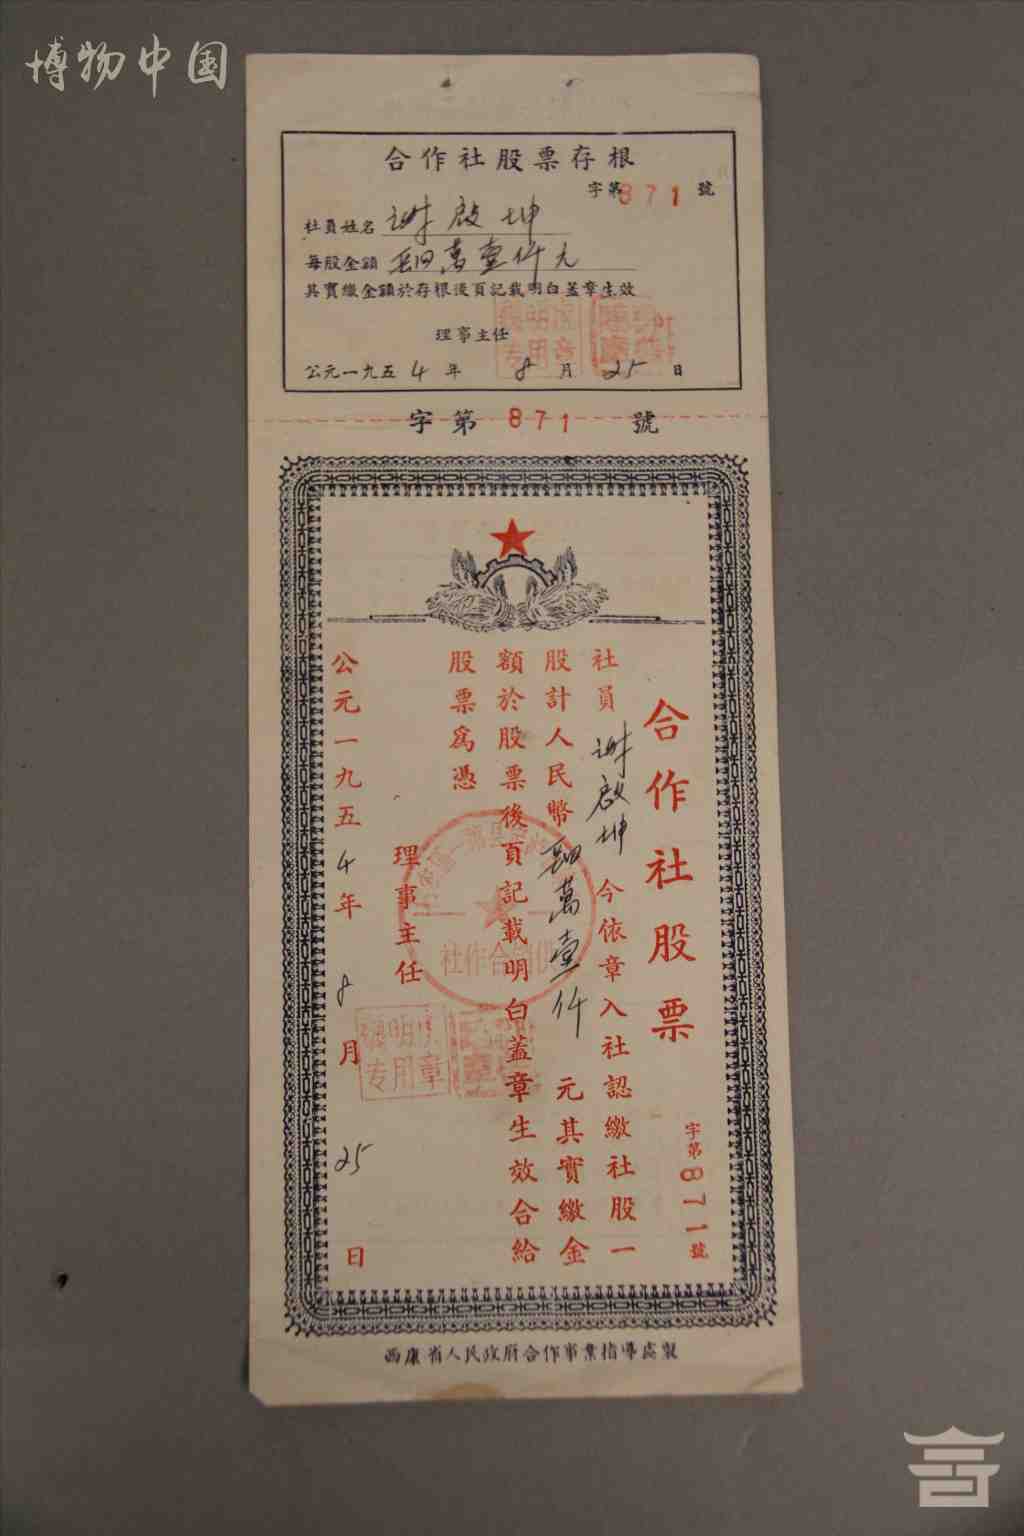 博物中国
合作社股票存根
字第871號
社員姓名 謝啟坤
每股金額 肆萬壹仟元
其實繳金額於存根後頁記載明白蓋章生效
理事主任
专用章
公元一九五4年8月25日
字第871號
合作社股票
字第871號
社員謝啟坤今依章入社認繳社股一
股計人民幣肆萬壹仟元其實繳金
額於股票後頁記載明白蓋章生效合給
股票為憑
理事主任
社作合
专用章
公元一九五4年8月25日
西康省人民政府合作事業指導處製